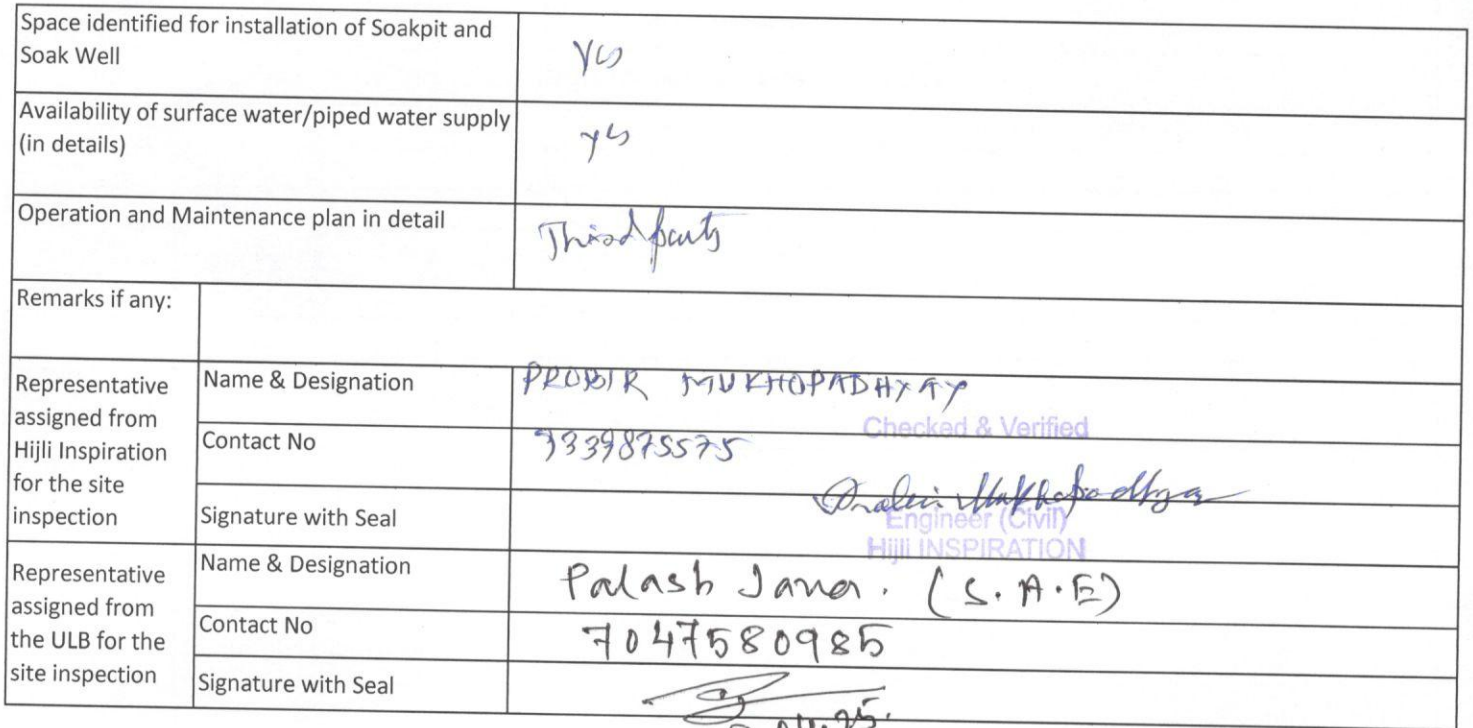 Space identified for installation of Soakpit and
Soak Well
Yes
Availability of surface water/piped water supply
(in details)
yes
Operation and Maintenance plan in detail
Third party
Remarks if any:
Representative
assigned from
Hijli Inspiration
for the site
inspection
Name & Designation
PROBIR MUKHOPADHYAY
Checked & Verified
Contact No
9339875575
Signature with Seal
Probir Mukhopadhyay
Engineer (Civil)
Hijli INSPIRATION
Representative
assigned from
the ULB for the
site inspection
Name & Designation
Palash Jana. (S.A.E)
Contact No
7047580985
Signature with Seal